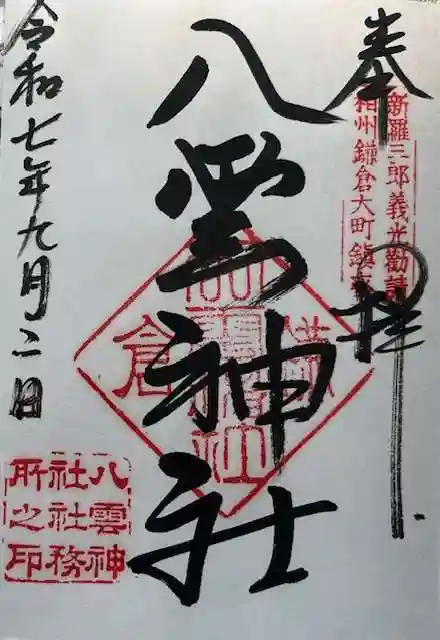 奉拝
新羅三郎義光勧請
相州鎌倉大町鎮
八雲神社
鎌倉
令和七年九月二日
八雲神
社社務
所之印